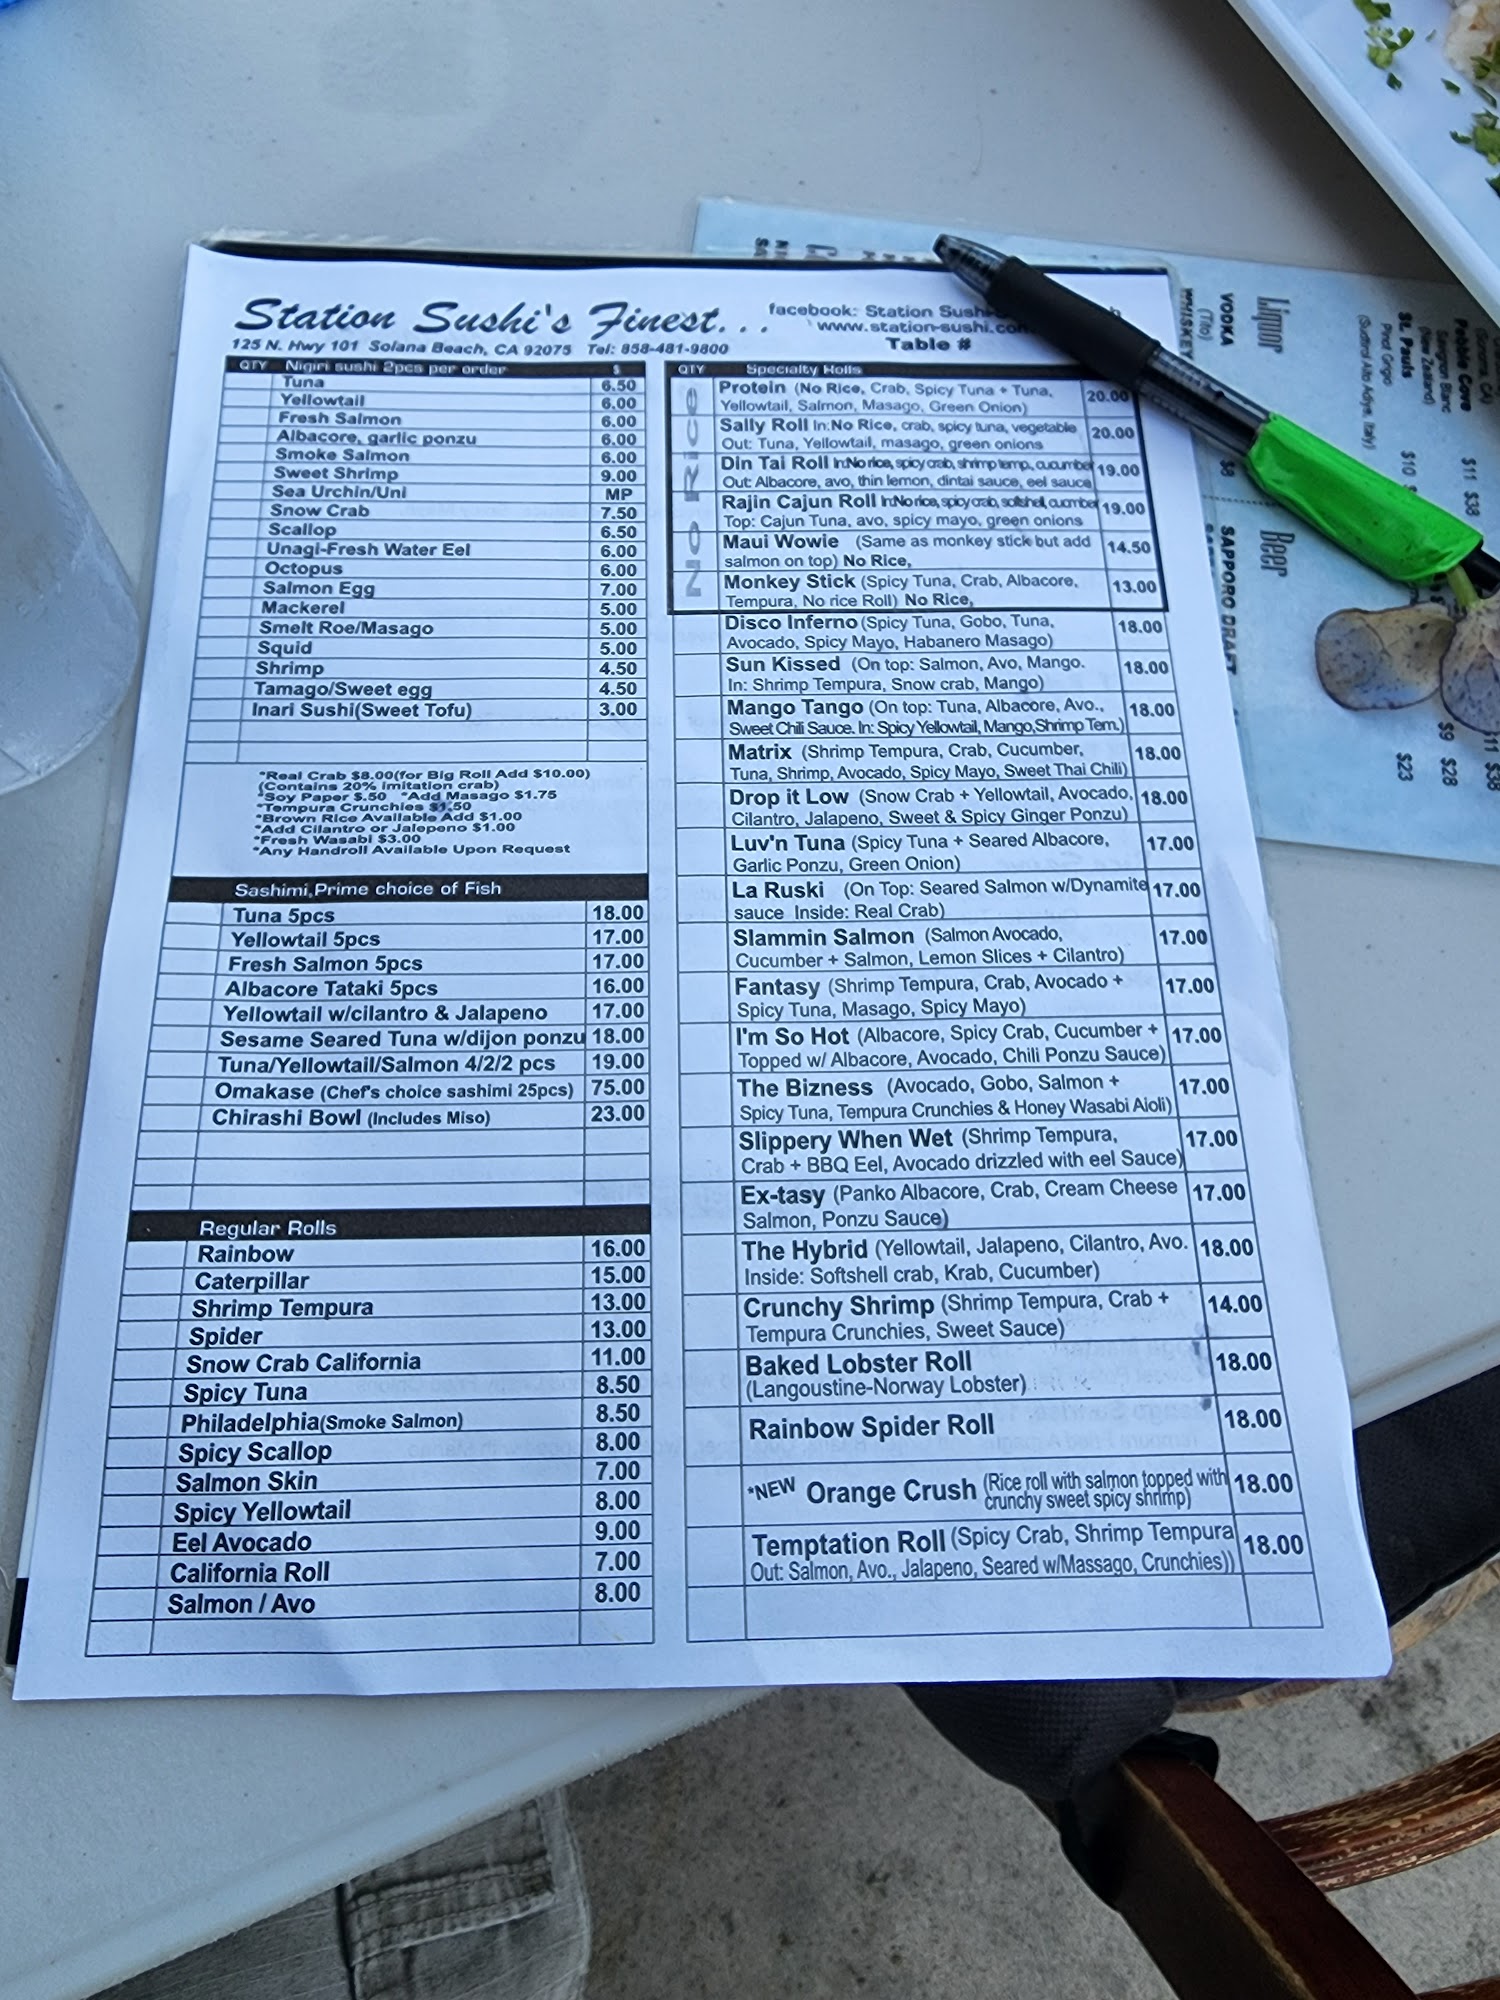 Station Sushi's Finest. . .
facebook: Station Sush
www.station-sushi.co
125 N. Hwy 101 Solana Beach, CA 92075 Tel: 858-481-9800
Table #
QTY Nigiri sushi 2pcs per order $
Tuna 6.50
Yellowtail 6.00
Fresh Salmon 6.00
Albacore, garlic ponzu 6.00
Smoke Salmon 6.00
Sweet Shrimp 9.00
Sea Urchin/Uni MP
Snow Crab 7.50
Scallop 6.50
Unagi-Fresh Water Eel 6.00
Octopus 6.00
Salmon Egg 7.00
Mackerel 5.00
Smelt Roe/Masago 5.00
Squid 5.00
Shrimp 4.50
Tamago/Sweet egg 4.50
Inari Sushi(Sweet Tofu) 3.00
*Real Crab $8.00(for Big Roll Add $10.00)
(Contains 20% imitation crab)
*Soy Paper $.50 *Add Masago $1.75
*Tempura Crunchies $1.50
*Brown Rice Available Add $1.00
*Add Cilantro or Jalepeno $1.00
*Fresh Wasabi $3.00
*Any Handroll Available Upon Request
Sashimi,Prime choice of Fish
Tuna 5pcs 18.00
Yellowtail 5pcs 17.00
Fresh Salmon 5pcs 17.00
Albacore Tataki 5pcs 16.00
Yellowtail w/cilantro & Jalapeno 17.00
Sesame Seared Tuna w/dijon ponzu 18.00
Tuna/Yellowtail/Salmon 4/2/2 pcs 19.00
Omakase (Chef's choice sashimi 25pcs) 75.00
Chirashi Bowl (Includes Miso) 23.00
Regular Rolls
Rainbow 16.00
Caterpillar 15.00
Shrimp Tempura 13.00
Spider 13.00
Snow Crab California 11.00
Spicy Tuna 8.50
Philadelphia(Smoke Salmon) 8.50
Spicy Scallop 8.00
Salmon Skin 7.00
Spicy Yellowtail 8.00
Eel Avocado 9.00
California Roll 7.00
Salmon / Avo 8.00
QTY Specialty Rolls
No Rice
Protein (No Rice, Crab, Spicy Tuna + Tuna, 20.00
Yellowtail, Salmon, Masago, Green Onion)
Sally Roll In:No Rice, crab, spicy tuna, vegetable 20.00
Out: Tuna, Yellowtail, masago, green onions
Din Tai Roll In:No rice, spicy crab, shrimp temp., cucumber 19.00
Out: Albacore, avo, thin lemon, dintai sauce, eel sauce
Rajin Cajun Roll In:No rice, spicy crab, softshell, cucumber 19.00
Top: Cajun Tuna, avo, spicy mayo, green onions
Maui Wowie (Same as monkey stick but add 14.50
salmon on top) No Rice,
Monkey Stick (Spicy Tuna, Crab, Albacore, 13.00
Tempura, No rice Roll) No Rice,
Disco Inferno (Spicy Tuna, Gobo, Tuna, 18.00
Avocado, Spicy Mayo, Habanero Masago)
Sun Kissed (On top: Salmon, Avo, Mango. 18.00
In: Shrimp Tempura, Snow crab, Mango)
Mango Tango (On top: Tuna, Albacore, Avo., 18.00
Sweet Chili Sauce. In: Spicy Yellowtail, Mango,Shrimp Tem.)
Matrix (Shrimp Tempura, Crab, Cucumber, 18.00
Tuna, Shrimp, Avocado, Spicy Mayo, Sweet Thai Chili)
Drop it Low (Snow Crab + Yellowtail, Avocado, 18.00
Cilantro, Jalapeno, Sweet & Spicy Ginger Ponzu)
Luv'n Tuna (Spicy Tuna + Seared Albacore, 17.00
Garlic Ponzu, Green Onion)
La Ruski (On Top: Seared Salmon w/Dynamite 17.00
sauce Inside: Real Crab)
Slammin Salmon (Salmon Avocado, 17.00
Cucumber + Salmon, Lemon Slices + Cilantro)
Fantasy (Shrimp Tempura, Crab, Avocado + 17.00
Spicy Tuna, Masago, Spicy Mayo)
I'm So Hot (Albacore, Spicy Crab, Cucumber + 17.00
Topped w/ Albacore, Avocado, Chili Ponzu Sauce)
The Bizness (Avocado, Gobo, Salmon + 17.00
Spicy Tuna, Tempura Crunchies & Honey Wasabi Aioli)
Slippery When Wet (Shrimp Tempura, 17.00
Crab + BBQ Eel, Avocado drizzled with eel Sauce)
Ex-tasy (Panko Albacore, Crab, Cream Cheese 17.00
Salmon, Ponzu Sauce)
The Hybrid (Yellowtail, Jalapeno, Cilantro, Avo. 18.00
Inside: Softshell crab, Krab, Cucumber)
Crunchy Shrimp (Shrimp Tempura, Crab + 14.00
Tempura Crunchies, Sweet Sauce)
Baked Lobster Roll 18.00
(Langoustine-Norway Lobster)
Rainbow Spider Roll 18.00
*NEW Orange Crush (Rice roll with salmon topped with 18.00
crunchy sweet spicy shrimp)
Temptation Roll (Spicy Crab, Shrimp Tempura 18.00
Out: Salmon, Avo., Jalapeno, Seared w/Massago, Crunchies))
Liquor
VODKA
(Tito)
WHISKEY
$8
Beer
SAPPORO DRAFT
Pebble Cove
(Sonoma, CA)
Sauvignon Blanc
$11 $38
St. Pauls
(New Zealand)
Pinot Grigio
$10
(Sudtirol Alto Adige, Italy)
$9 $28
$23